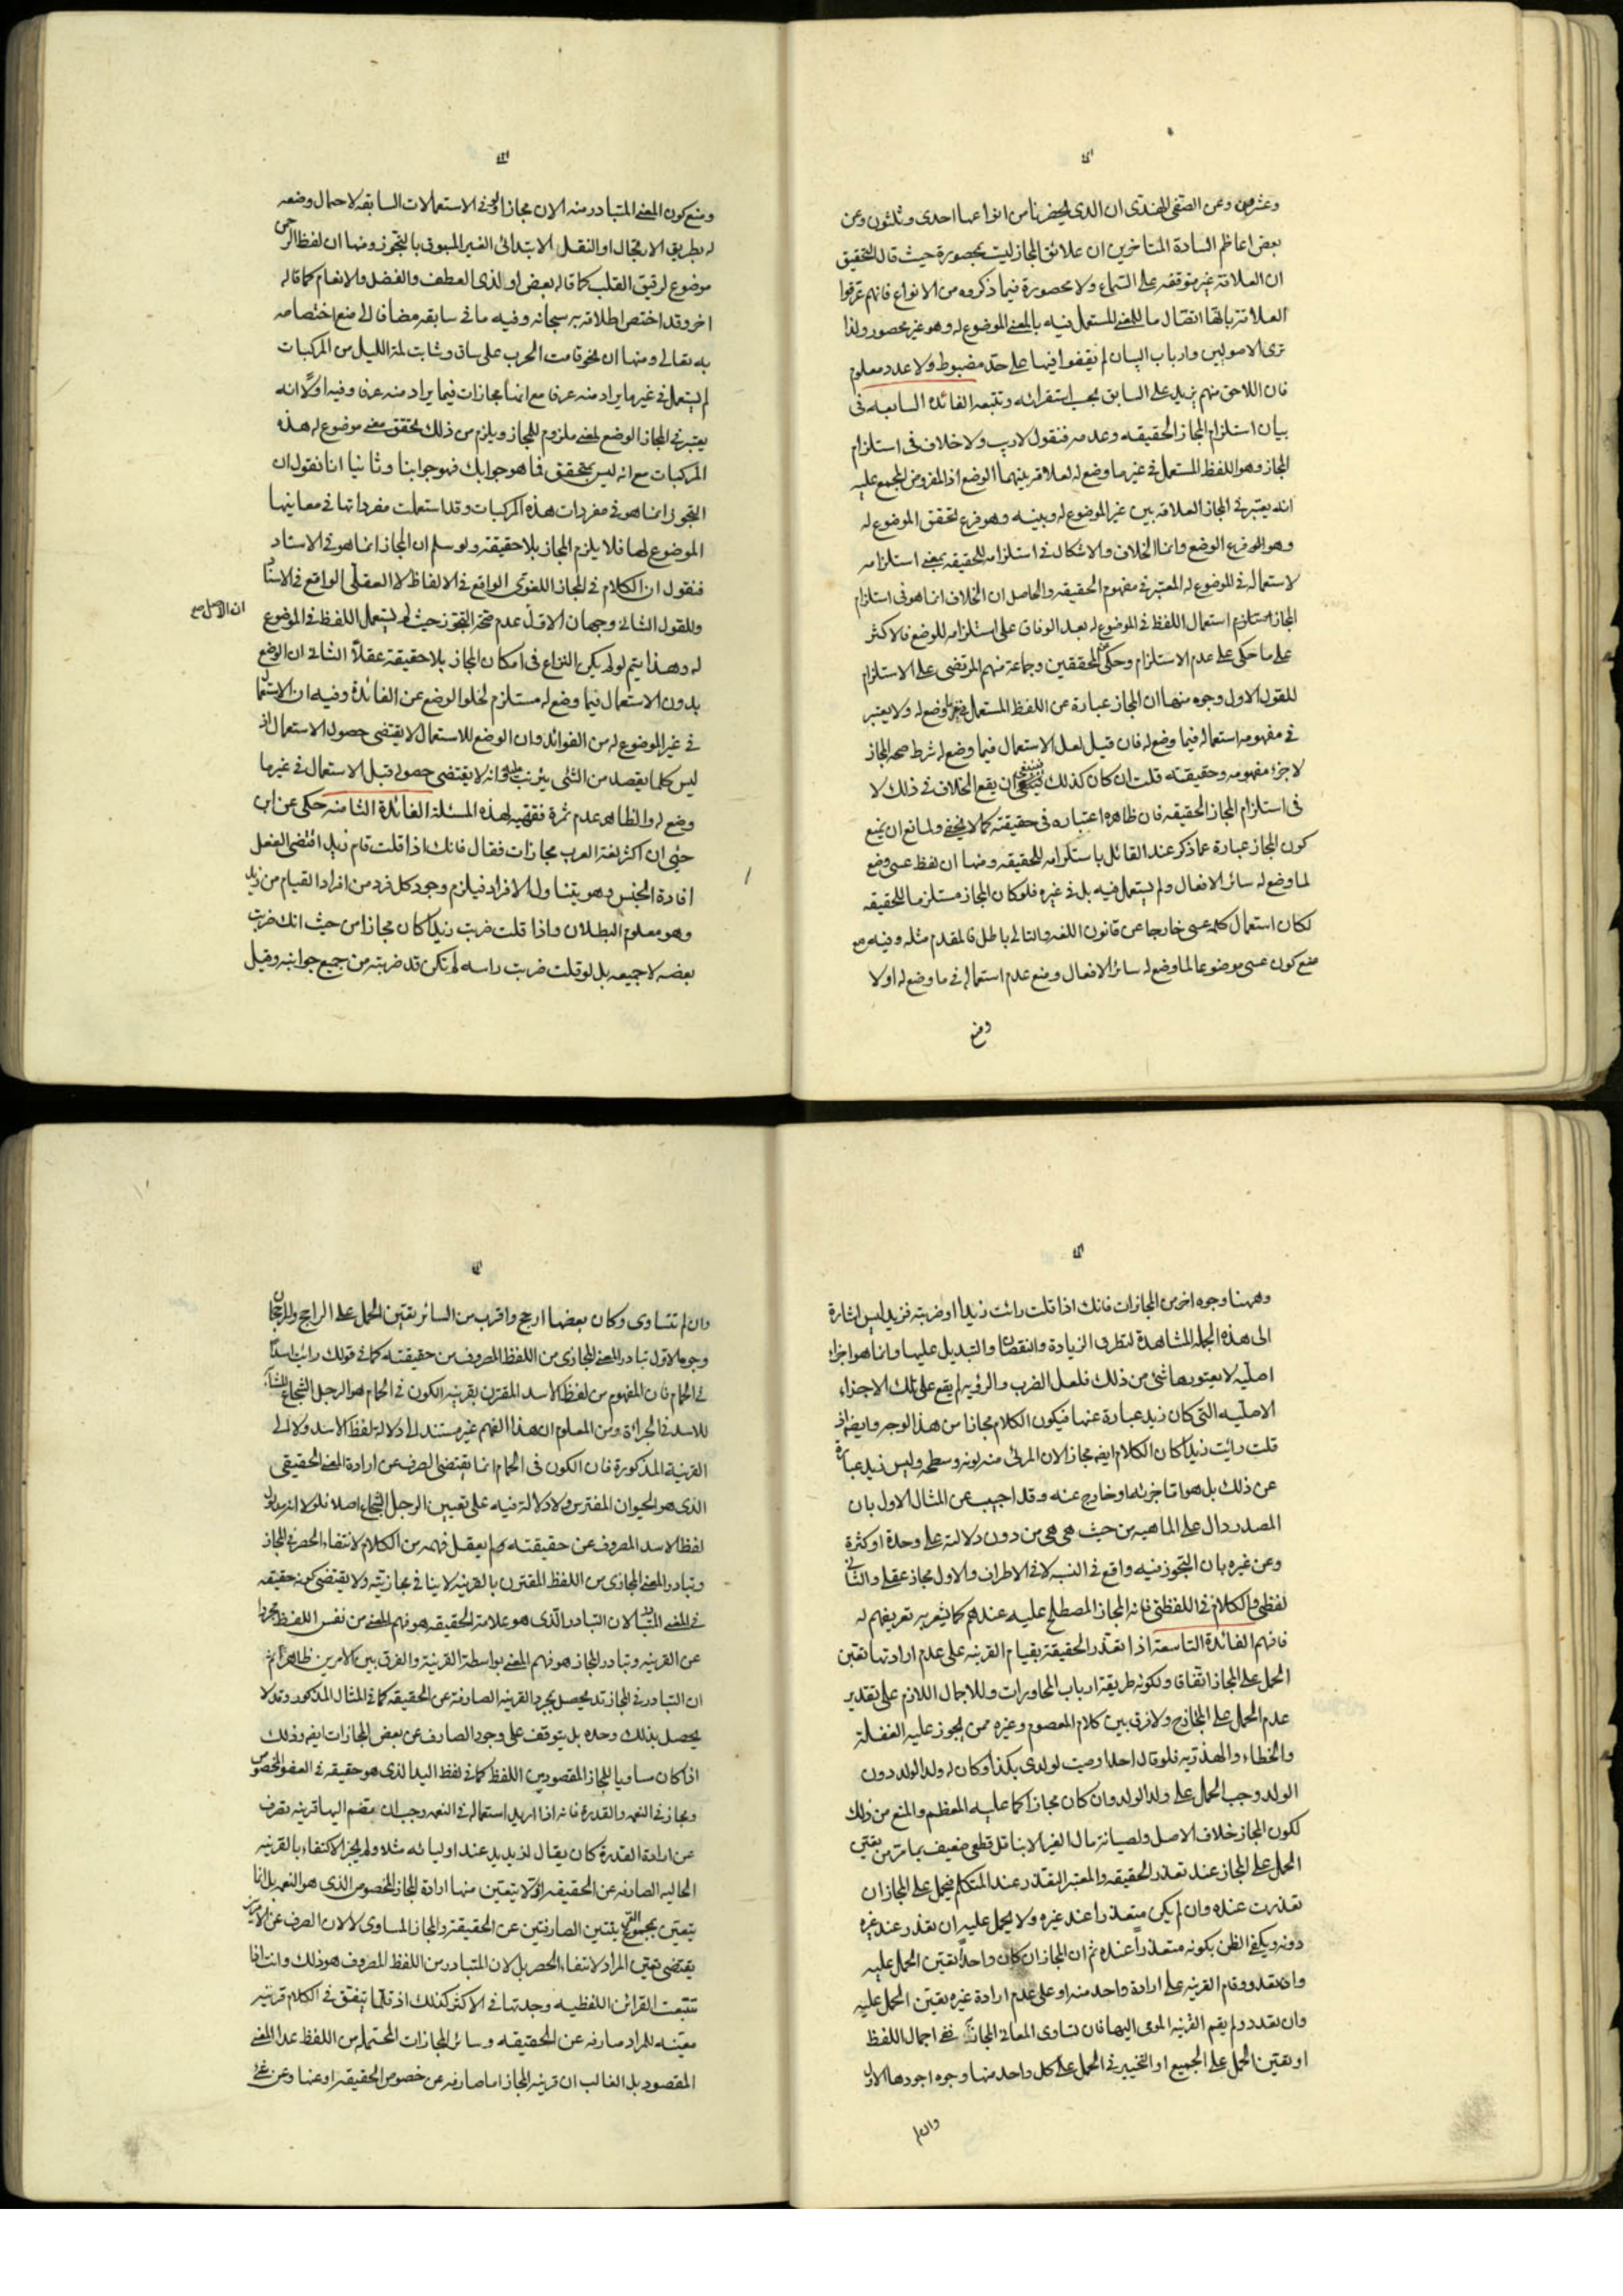 وعشرين وعن الصفى الهندى ان الذى يحضرنا من انواعها احدى وثلثون وعن
بعض اعاظم السادة المتاخرين ان علائق المجاز ليست بمحصورة حيث قال التحقيق
ان العلاقة غير متوقفه على السماع ولا محصورة فيما ذكروه من الانواع فانهم عرفوا
العلاقة بانها اتصال ما للمعنى المستعمل فيه بالمعنى الموضوع له وهو غير محصور ولذا
ترى الاصوليين وارباب البيان لم يقفوا فيها على حد مضبوط ولا عدد معلوم
فان اللاحق منهم يزيد على السابق بحسب استقرائه وتتبعه الفائدة السابعه فى
بيان استلزام المجاز الحقيقه وعدمه فنقول لا ريب ولا خلاف فى استلزام
المجاز وهو اللفظ المستعمل فى غير ما وضع له لعلاقة بينهما الوضع اذ المفروض المجمع عليه
انه يعتبر فى المجاز العلاقه بين غير الموضوع له وبينه وهو فرع تحقق الموضوع له
وهو فرع الوضع وانما الخلاف والاشكال فى استلزامه للحقيقه بمعنى استلزامه
لاستعماله فى الموضوع له المعتبر فى مفهوم الحقيقه والحاصل ان الخلاف انما هو فى استلزام
المجاز استلزام استعمال اللفظ فى الموضوع له بعد الوفاق على استلزامه للوضع فالاكثر
على ما حكى على عدم الاستلزام وحكى عن المحققين وجماعة منهم المرتضى على الاستلزام
للقول الاول وجوه منها ان المجاز عبارة عن اللفظ المستعمل فى غير ما وضع له ولا يعتبر
فى مفهومه استعماله فيما وضع له فان قيل لعل الاستعمال فيما وضع له شرط صحه المجاز
لا جزء مفهومه وحقيقته قلت ان كان كذلك فينبغى ان يقع الخلاف فى ذلك لا
فى استلزام المجاز الحقيقه فان ظاهره اعتباره فى حقيقته كما لا يخفى ولمانع ان يمنع
كون المجاز عبارة عما ذكر عند القائل باستلزامه للحقيقه ومنها ان لفظ عسى وضع
لما وضع له سائر الافعال ولم يستعمل فيه بل فى غيره فلو كان المجاز مستلزما للحقيقه
لكان استعمال كلمة عسى خارجا عن قانون اللغه والتالى باطل فالمقدم مثله وفيه مع
منع كون عسى موضوعا لما وضع له سائر الافعال ومنع عدم استعماله فى ما وضع له اولا
ومنع
ومنع كون المعنى المتبادر منه الان مجازا فى الاستعمالات السابقه لاحتمال وضعه
له بطريق الارتجال او النقل الابتدائى الغير المسبوق بالتجوز ومنها ان لفظ الرحمن
موضوع لرقيق القلب كما قاله بعض او لذى العطف والفضل والانعام كما قاله
اخر وقد اختص اطلاقه به سبحانه وفيه ما فى سابقه مضافا الى منع اختصاصه
به تعالى ومنها ان نحو قامت الحرب على ساق وشابت لمة الليل من المركبات
لم يستعمل فى غير ما يراد منه عرفا مع انها مجازات فيما يراد منه عرفا وفيه اولا انه
يعتبر فى المجاز الوضع لمعنى ملزوم للمجاز ويلزم من ذلك تحقق معنى موضوع له هذه
المركبات مع انه ليس بمتحقق فما هو جوابك فهو جوابنا وثانيا انا نقول ان
التجوز انما هو فى مفردات هذه المركبات وقد استعملت مفرداتها فى معانيها
الموضوع لها فلا يلزم المجاز بلا حقيقة ولو سلم ان المجاز انما هو فى الاسناد
فنقول ان الكلام فى المجاز اللغوى الواقع فى الالفاظ لا العقلى الواقع فى الاسناد
وللقول الثانى وجهان الاول عدم صحة التجوز حيث لم يستعمل اللفظ فى الموضوع
له وهذا يتم لو لم يكن النزاع فى امكان المجاز بلا حقيقة عقلا الثانى ان الوضع
بدون الاستعمال فيما وضع له مستلزم لخلو الوضع عن الفائدة وفيه ان الاستعمال
فى غير الموضوع له من الفوائد وان الوضع للاستعمال لا يقتضى حصول الاستعمال اذ
ليس كلما يقصد من الشئ يترتب عليه وانه لا يقتضى حصوله قبل الاستعمال فى غير ما
وضع له والظاهر عدم ثمرة فقهيه لهذه المسئلة الفائدة الثامنه حكى عن ابن
جنى ان اكثر لغة العرب مجازات فقال فانك اذا قلت قام زيد اقتضى الفعل
افادة الجنس وهو يتناول الافراد فيلزم وجود كل فرد من افراد القيام من زيد
وهو معلوم البطلان واذا قلت ضربت زيدا كان مجازا من حيث انك ضربت
بعضه لا جميعه بل لو قلت ضربت راسه لم تكن قد ضربته من جميع جوانبه وقيل
وههنا وجوه اخر من المجازات فانك اذا قلت رائت زيدا او ضربته فزيد ليس اشارة
الى هذه الجملة المشاهدة لتطرق الزيادة والنقصان والتبديل عليها وانما هو اجزاء
اصليه لا يعتورها شئ من ذلك فلعل الضرب والرؤيه لم يقع على تلك الاجزاء
الاصليه التى كان زيد عبارة عنها فيكون الكلام مجازا من هذا الوجه وايضا اذ
قلت رائت زيدا كان الكلام ايضا مجازا لان المرئى منه لونه وسطحه وليس زيد عبارة
عن ذلك بل هو اما جزئه او خارج عنه وقد اجيب عن المثال الاول بان
المصدر دال على الماهيه من حيث هى هى من دون دلالة على وحدة او كثرة
وعن غيره بان التجوز فيه واقع فى النسبه لا فى الاطراف والاول مجاز عقلى والثانى
لفظى والكلام فى اللفظى فانه المجاز المصطلح عليه عندهم كما يشعر به تعريفهم له
فافهم الفائدة التاسعة اذا تعذر الحقيقة بقيام القرينه على عدم ارادتها تعين
الحمل على المجاز اتفاقا ولكونه طريقة ارباب المحاورات وللاجمال اللازم على تقدير
عدم الحمل على المجازح ولا فرق بين كلام المعصوم وغيره ممن يجوز عليه الغفلة
والخطاء والهذريه فلو قال احد اوصيت لولدى بكذا وكان له ولد الولد دون
الولد وجب الحمل على ولد الولد وان كان مجازا كما عليه المعظم والمنع من ذلك
لكون المجاز خلاف الاصل ولصيانة مال الغير الا بناقل قطعى ضعيف بما مر من تعين
الحمل على المجاز عند تعذر الحقيقه والمعتبر التعذر عند المتكلم فيحمل على المجاز ان
تعذرت عنده وان لم يكن متعذرا عند غيره ولا يحمل عليه ان تعذر عند غيره
دونه ويكفى الظن بكونه متعذرا عنده ثم ان المجاز ان كان واحدا تعين الحمل عليه
وان تعدد وقام القرينه على ارادة واحد منه او على عدم ارادة غيره تعين الحمل عليه
وان تعدد ولم يقم القرينه المومى اليها فان تساوى المعانى المجازية ففى اجمال اللفظ
او تعين الحمل على الجميع او التخيير فى الحمل على كل واحد منها وجوه اجودها الاول
وان لم
وان لم تتساوى وكان بعضها ارجح واقرب من السائر تعين الحمل على الراجح والرجحان
وجوه الاول تبادر المعنى المجازى من اللفظ المصروف من حقيقته كما فى قولك رائت اسدا
فى الحمام فان المفهوم من لفظ الاسد المقترن بقرينة الكون فى الحمام هو الرجل الشجاع المشابه
للاسد فى الجرائة ومن المعلوم ان هذا الفهم غير مستند الى دلالة لفظ الاسد ولا الى
القرينة المذكورة فان الكون فى الحمام انما يقتضى الصرف عن ارادة المعنى الحقيقى
الذى هو الحيوان المفترس ولا دلالة فيه على تعيين الرجل الشجاع اصلا فلولا انه مدلول
لفظ الاسد المصروف عن حقيقته لم يعقل فهمه من الكلام لانتفاء الحصر فى المجاز
وتبادر المعنى المجازى من اللفظ المقترن بالقرينه لا ينافى مجازيته ولا يقتضى كونه حقيقه
فى المعنى المتبادر لان التبادر الذى هو علامة الحقيقه هو فهم المعنى من نفس اللفظ مجردا
عن القرينه وتبادر المجاز هو فهم المعنى بواسطة القرينة والفرق بين الامرين ظاهر ثم
ان التبادر فى المجاز قد يحصل بمجرد القرينه الصارفة عن الحقيقه كما فى المثال المذكور وقد لا
يحصل بذلك وحده بل يتوقف على وجود الصارف عن بعض المجازات ايضا وذلك
اذا كان مساويا للمجاز المقصود من اللفظ كما فى لفظ اليد الذى هو حقيقه فى العضو المخصوص
ومجاز فى النعمه والقدرة فانه اذا اريد استعماله فى النعمه وجب ان تضم اليها قرينه تصرف
عن ارادة القدرة كان يقال لزيد يد عند اوليائه مثلا ولم يجز الاكتفاء بالقرينه
الحاليه الصارفه عن الحقيقه اذ لا يتعين منها ارادة المجاز المخصوص الذى هو النعمه بل انما
يتعين بمجموع القرينتين الصارفتين عن الحقيقة والمجاز المساوى لا لان الصرف عن الامرين
يقتضى تعين المراد لانتفاء الحصر بل لان المتبادر من اللفظ المصروف هو ذلك وانت اذا
تتبعت القرائن اللفظيه وجدتها فى الاكثر كذلك اذ قلما يتفق فى الكلام قرينه
معينه للمراد صارفه عن الحقيقه وسائر المجازات المحتمله من اللفظ عدا المعنى
المقصود بل الغالب ان قرينه المجاز اما صارفه عن خصوص الحقيقه او عنها وعن